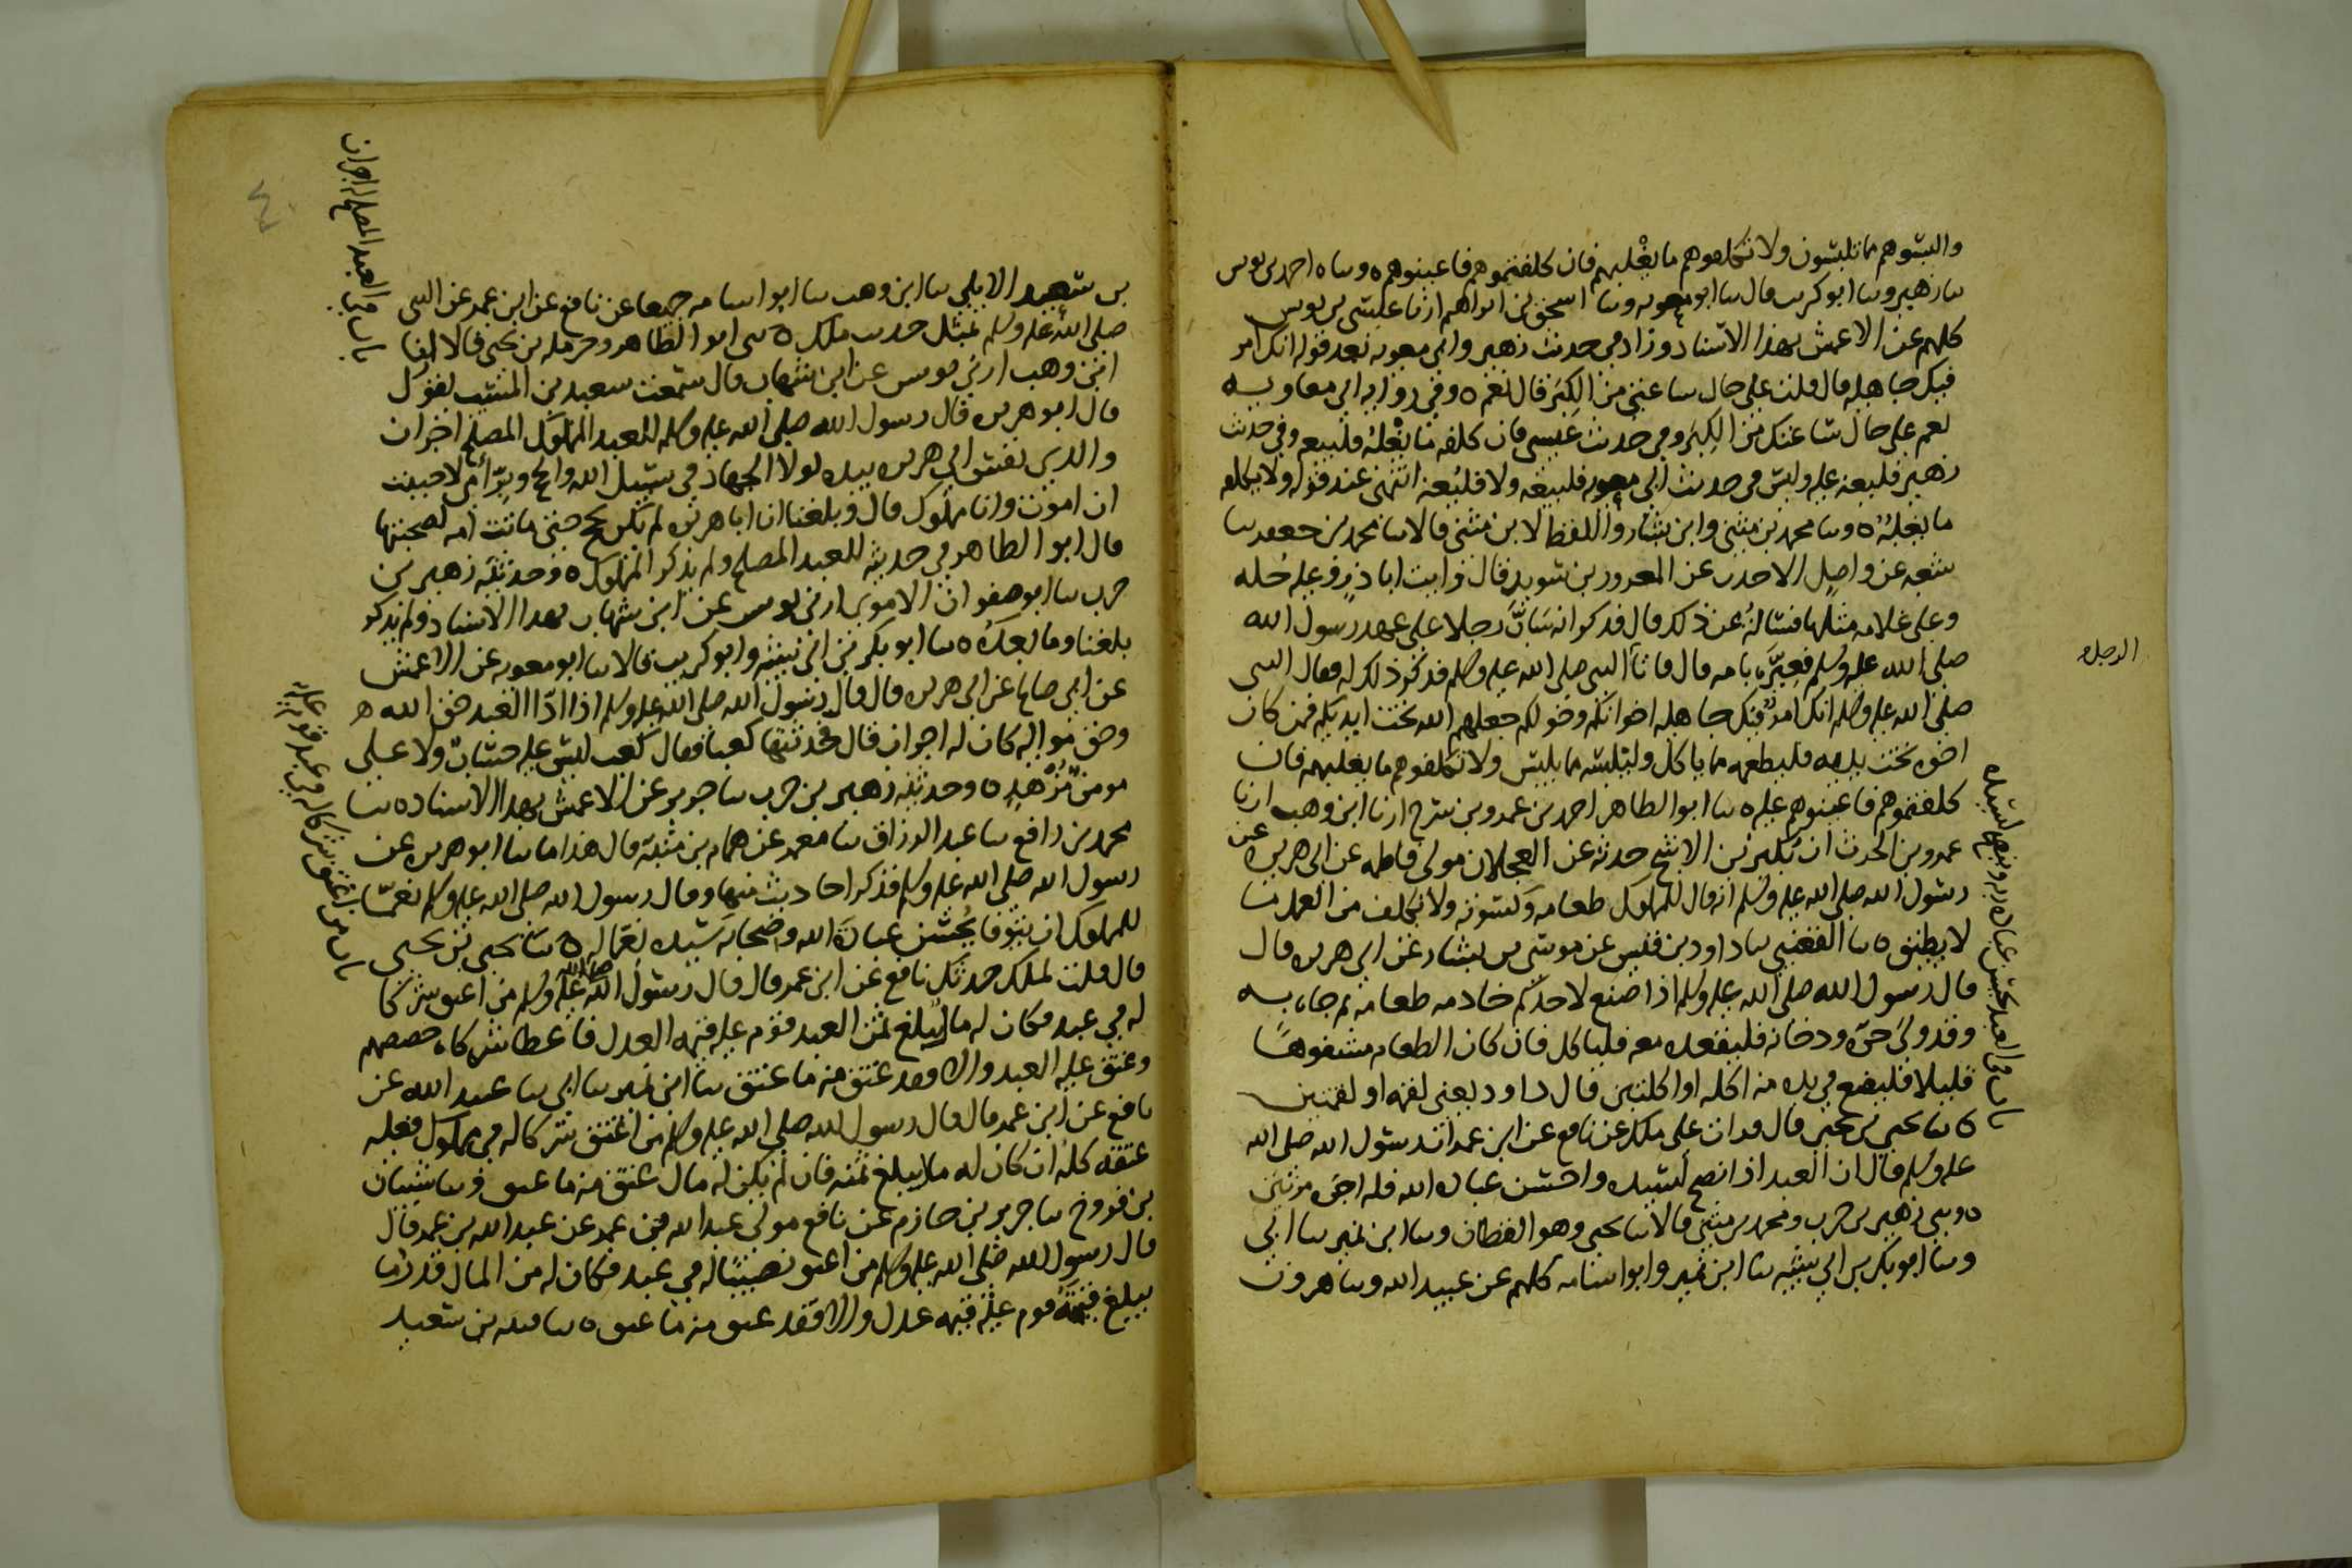 والبسوهم مما تلبسون ولا تكلفوهم ما يغلبهم فان كلفتموهم فاعينوهم ه وساه احمد بن يونس
سا زهير وسا ابو كريب قال سا ابو معويه وسا اسحق بن ابراهيم ارنا عيسى بن يونس
كلهم عن الاعمش بهذا الاسناد وزاد في حديث زهير وابي معويه بعد قوله انك امرؤ
فيك جاهليه قال قلت على حال ساعتي من الكبر قال نعم ه وفي روايه ابي معاويه
نعم على حال ساعتك من الكبر وفي حديث عيسى فان كلفه ما يغلبه فليبعه وفي حديث
زهير فليعنه عليه وليس في حديث ابي معويه فليبعه ولا فليعنه انتهى عند قوله ولا يكلفه
ما يغلبه ه وسا محمد بن مثنى وابن بشار واللفظ لابن مثنى قالا سا محمد بن جعفر سا
شعبه عن واصل الاحدب عن المعرور بن سويد قال رايت ابا ذر وعليه حله
وعلى غلامه مثلها فسالته عن ذلك قال فذكر انه ساب رجلا على عهد رسول الله
صلى الله عليه وسلم فعيره بامه قال فاتا النبي صلى الله عليه وسلم فذكر ذلك له فقال النبي
الرجل
صلى الله عليه وسلم انك امرؤ فيك جاهليه اخوانكم وخولكم جعلهم الله تحت ايديكم فمن كان
اخوه تحت يديه فليطعمه مما ياكل وليلبسه مما يلبس ولا تكلفوهم ما يغلبهم فان
كلفتموهم فاعينوهم عليه ه سا ابو الطاهر احمد بن عمرو بن سرح ارنا ابن وهب ارنا
عمرو بن الحرث ان بكير بن الاشج حدثه عن العجلان مولى فاطمه عن ابي هريره عن
رسول الله صلى الله عليه وسلم انه قال للمملوك طعامه وكسوته ولا يكلف من العمل ما
لا يطيق ه سا القعنبي سا داود بن قيس عن موسى بن يسار عن ابي هريره قال
قال رسول الله صلى الله عليه وسلم اذا صنع لاحدكم خادمه طعامه ثم جاءه به
وقد ولي حره ودخانه فليقعده معه فلياكل فان كان الطعام مشفوها
قليلا فليضع في يده منه اكله او اكلتين قال داود يعني لقمه او لقمتين
باب في العبد يحسن عبادة ربه وينصح لسيده
ه سا يحيى بن يحيى قال قرات على ملك عن نافع عن ابن عمر ان رسول الله صلى الله
عليه وسلم قال ان العبد اذا نصح لسيده واحسن عباده الله فله اجره مرتين
ه وسي زهير بن حرب ومحمد بن مثنى قالا سا يحيى وهو القطان وسا ابن نمير سا ابي
وسا ابو بكر بن ابي شيبه سا ابن نمير وابو اسامه كلهم عن عبيد الله وسا هرون
٤٠
بن سعيد الايلي سا ابن وهب سا ابو اسامه جميعا عن نافع عن ابن عمر عن النبي
صلى الله عليه وسلم بمثل حديث ملك ه سي ابو الطاهر وحرمله بن يحيى قالا ارنا
باب في العبد المصلح له اجران
ابن وهب ارني يونس عن ابن شهاب قال سمعت سعيد بن المسيب يقول
قال ابو هريره قال رسول الله صلى الله عليه وسلم للعبد المملوك المصلح اجران
والذي نفس ابي هريره بيده لولا الجهاد في سبيل الله والحج وبر امي لاحببت
ان اموت وانا مملوك قال وبلغنا ان ابا هريره لم يكن يحج حتى ماتت امه لصحبتها
قال ابو الطاهر في حديثه للعبد المصلح ولم يذكر المملوك ه وحدثنيه زهير بن
حرب سا ابو صفوان الاموي ارني يونس عن ابن شهاب بهذا الاسناد ولم يذكر
بلغنا وما بعده ه سا ابو بكر بن ابي شيبه وابو كريب قالا سا ابو معويه عن الاعمش
عن ابي صالح عن ابي هريره قال قال رسول الله صلى الله عليه وسلم اذا ادا العبد حق الله
وحق مواليه كان له اجران قال فحدثتها كعبا فقال كعب ليس عليه حساب ولا على
مومن مزهد ه وحدثنيه زهير بن حرب سا جرير عن الاعمش بهذا الاسناد ه سا
محمد بن رافع سا عبد الرزاق سا معمر عن همام بن منبه قال هذا ما سا ابو هريره عن
رسول الله صلى الله عليه وسلم فذكر احاديث منها وقال رسول الله صلى الله عليه وسلم نعما
للمملوك ان يتوفا يحسن عبادة الله وصحابة سيده نعما له ه سا يحيى بن يحيى
باب من اعتق شركا له في عبد قوم عليه
قال قلت لملك حدثك نافع عن ابن عمر قال قال رسول الله صلى الله عليه وسلم من اعتق شركا
له في عبد فكان له مال يبلغ ثمن العبد قوم عليه قيمه العدل فاعطا شركاه حصصهم
وعتق عليه العبد والا فقد عتق منه ما عتق سا ابن نمير سا ابي سا عبيد الله عن
نافع عن ابن عمر قال قال رسول الله صلى الله عليه وسلم من اعتق شركا له في مملوك فعليه
عتقه كله ان كان له مال يبلغ ثمنه فان لم يكن له مال عتق منه ما عتق وسا شيبان
بن فروخ سا جرير بن حازم عن نافع مولى عبد الله بن عمر عن عبد الله بن عمر قال
قال رسول الله صلى الله عليه وسلم من اعتق نصيبا له في عبد فكان له من المال قدر ما
يبلغ قيمته قوم عليه قيمه عدل والا فقد عتق منه ما عتق ه سا قتيبه بن سعيد